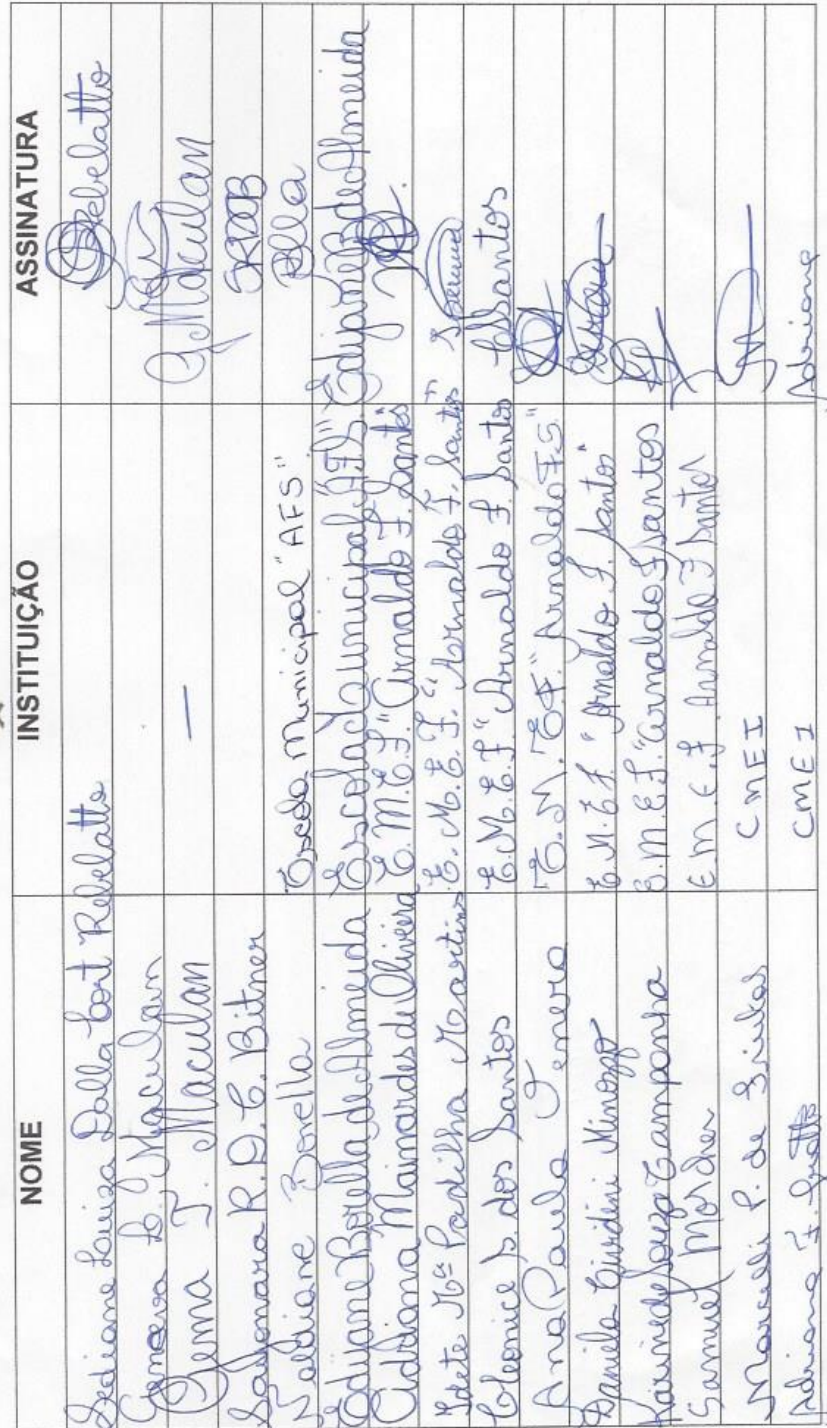 NOME INSTITUIÇÃO ASSINATURA
Lediane Luiza Dalla Cort Rebelatto Rebelatto
Geneva L. Maculan
Gema T. Maculan — G Maculan
Sayonara R. D. C. Bitner SRDCB
Valdiane Borella Escola Municipal "AFS"
Edijane Borella de Almeida Escola Municipal "AFS" Edijane B de Almeida
Cidiana Mainardes de Oliveira E. M. E. F. "Arnaldo F. Santos
Idete Mª Padilha Martins E. M. E. F. "Arnaldo F. Santos"
Cleonice S. dos Santos E. M. E. F "Arnaldo F. Santos CSantos
Ana Paula E. M. "E F". Arnaldo F.S."
Daniela Cividini Minozzo E. M. E F. "Arnaldo F. Santos"
Karine de Souza Campanha E. M. E F. "Arnaldo F Santos
Samuel Morcher E. M. E. F. Arnaldo F Santos
Marcelli P. de CMEI
Adriana F. CMEI Adriana